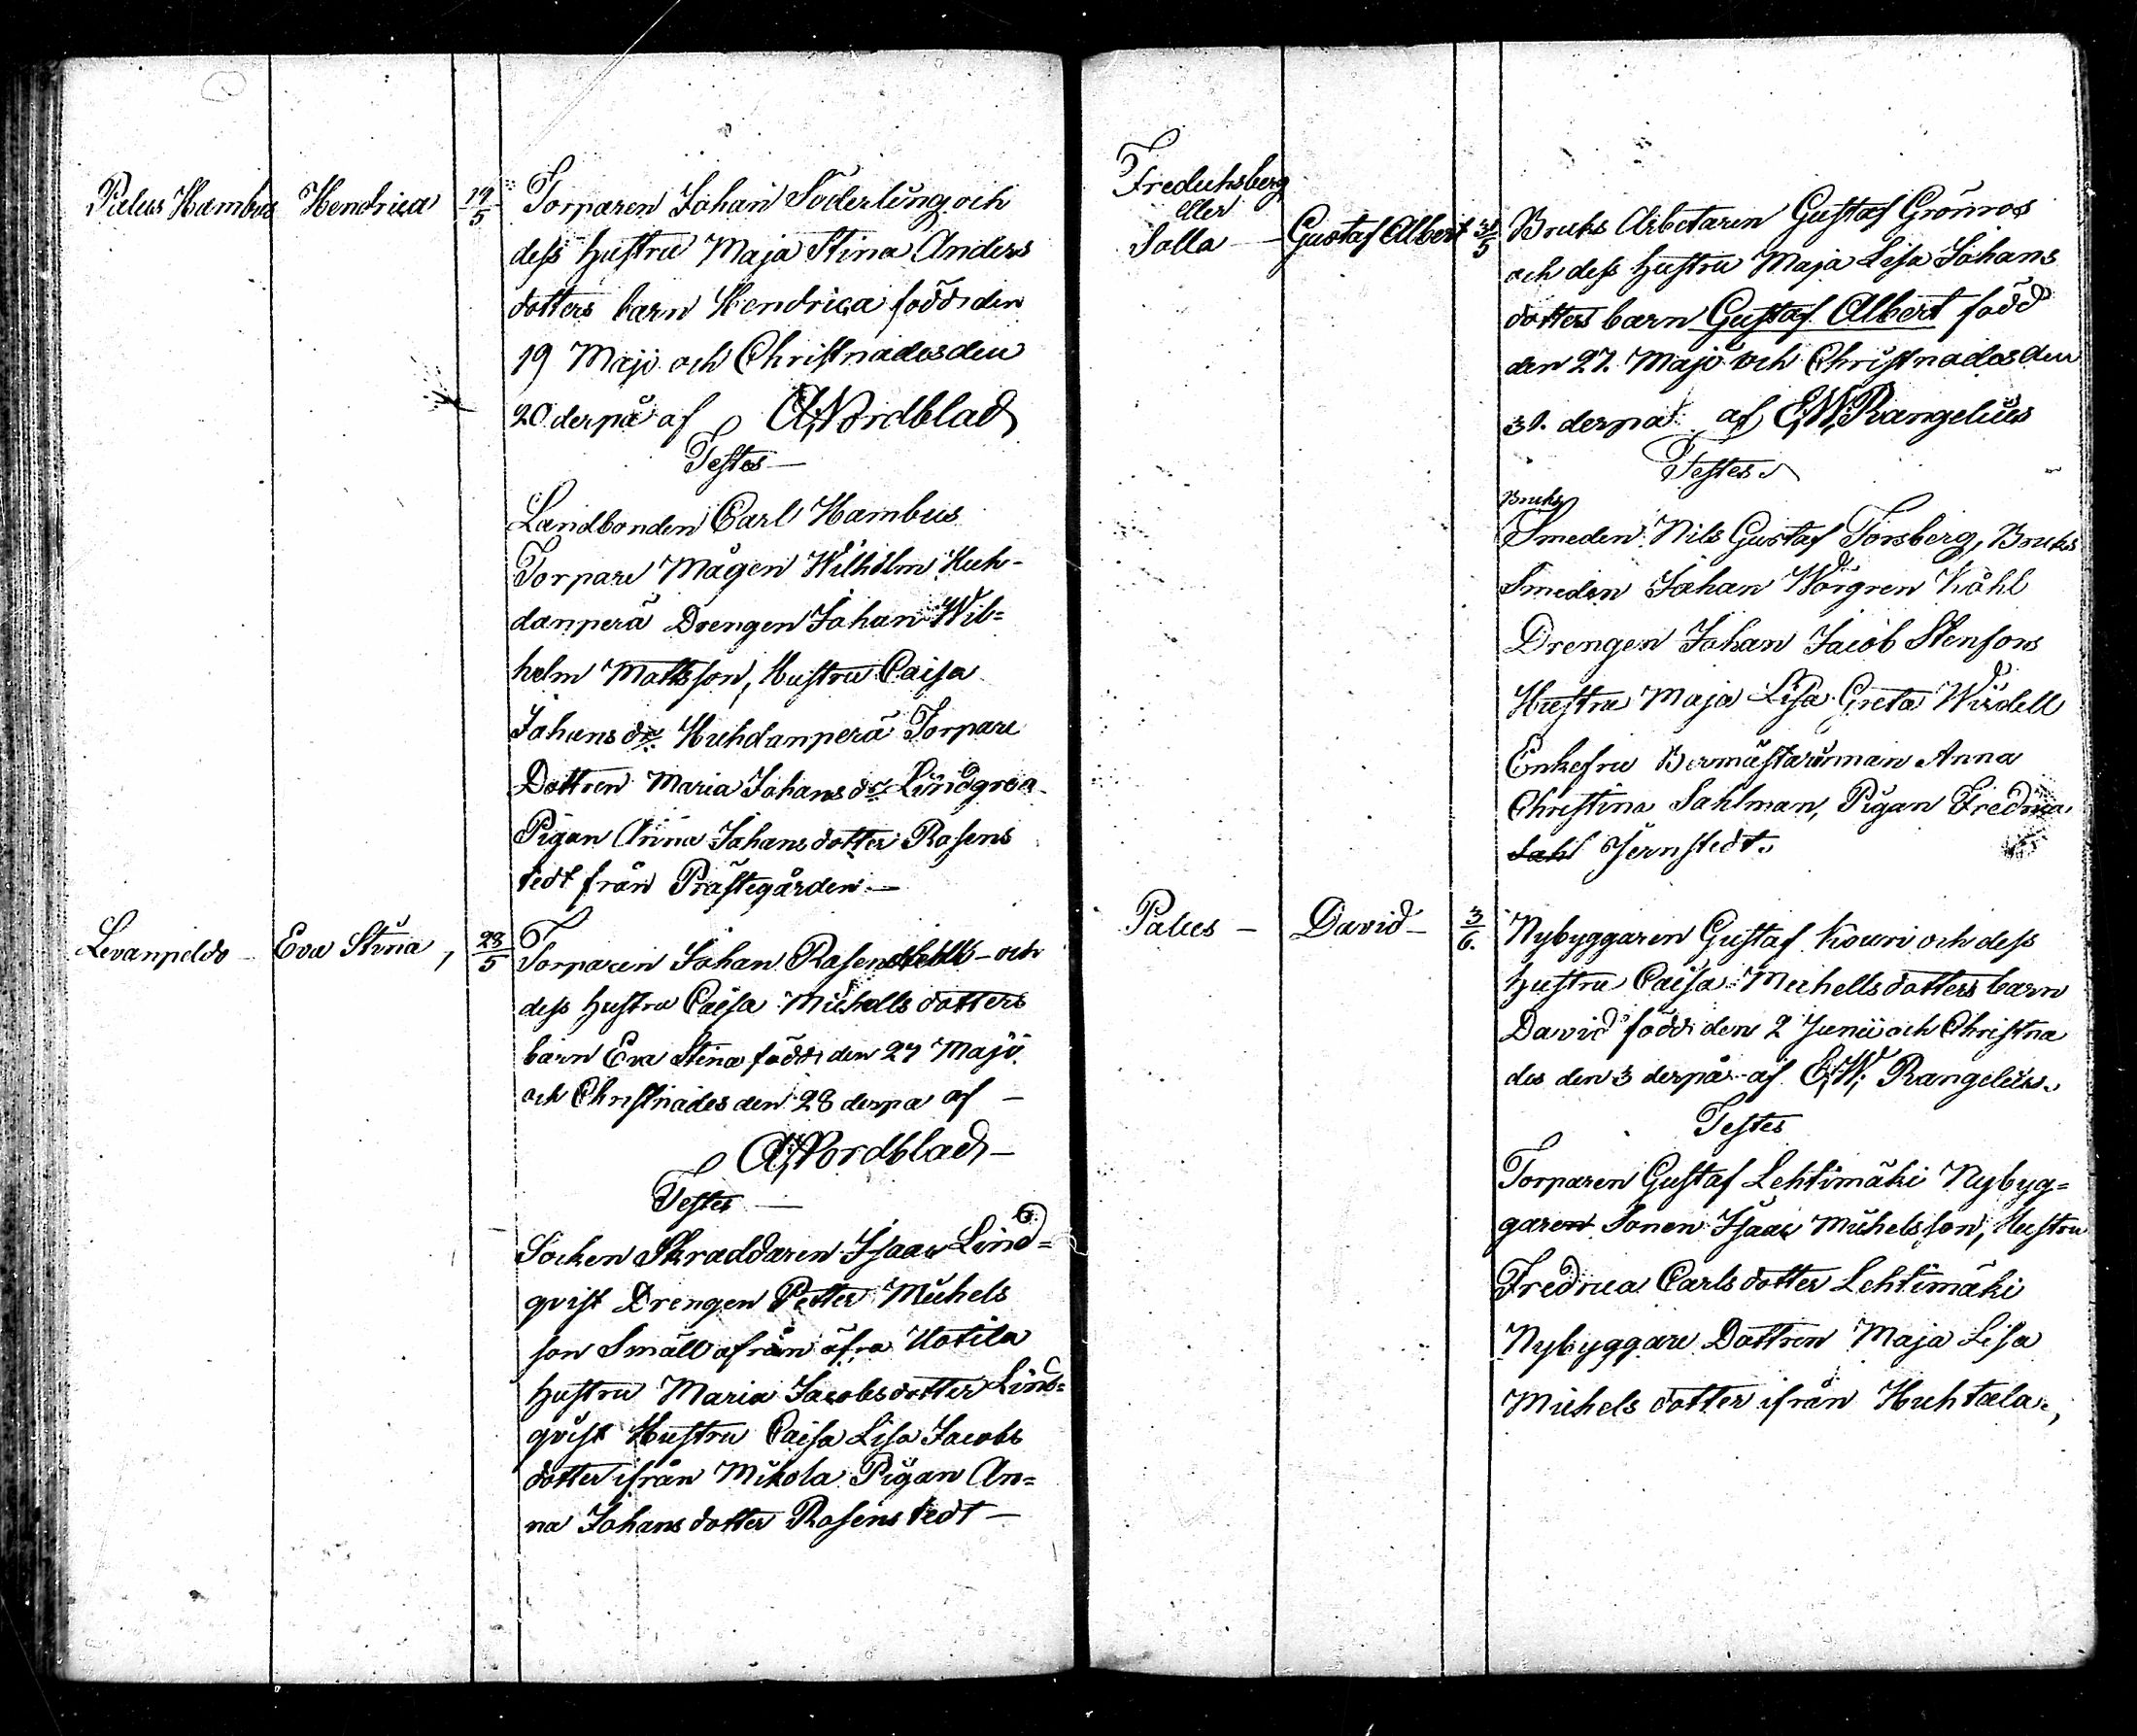 Pileus Hambus Hendrica 19/5 Torparen Johan Söderlung och
dess hustru Maja Stina Anders
dotters barn Hendrica född den
19 Maji och Christnades den
20 derpå af A, Nordblad
Testes —
Landbonden Carl Hambus
Torpare Mågen Wilhelm Huh-
danperä Drengen Johan Wil=
helm Mattsson, Hustru Caisa
Johans dr Huhdanperä Torpare
Dottren Maria Johans dr Lindgren
Pigan Anna Johans dotter Rosens
tedt från Prästegården —
Levanpeldo — Eva Stina, 28/5 Torparen Johan — och
dess hustru Caisa Michells dotters
barn Eva Stina född den 27 Maji
och Christnades den 28 derpa af —
A, Nordblad —
Testes —
Socken Skraddaren Isaac Lind=
qvist Drengen Petter Michels
son Småll ifrån öfra Uotila
hustru Maria Jacobs dotter Lind=
qvist Hustru Caisa Lisa Jacobs
dotter ifrån Mikola Pigan An=
na Johans dotter Rosenstedt —
Fredrichsberg
eller
Salla — Gustaf Albert 31/5 Bruks Arbetaren Gustaf Grönros
och dess hustru Maja Lisa Johans
dotters barn Gustaf Albert född
den 27. Maji och Christnades den
31. derpå af E, W, Rangelius
Testes
Bruks
Smeden Nils Gustaf Forsberg, Bruks
Smeden Johan Wörgren Kåhl
Drengen Johan Jacob Stenfors
Hustru Maja Lisa Greta Widell
Enkefru Anna
Christina Sahlman, Pigan Fredrica
Sahl Jernstedt.
Palus — David — 3/6. Nybyggaren Gustaf Kouri och dess
hustru Caisa Michells dotters barn
David född den 2 Junii och Christna
des den 3 derpå af E, W, Rangelius.
Testes
Torparen Gustaf Lehtimäki Nybyg=
garen Sonen Isaac Michelsson, Hustru
Fredrica Carls dotter Lehtimäki
Nybyggare Dottren Maja Lisa
Michels dotter ifrån Huhtala.,